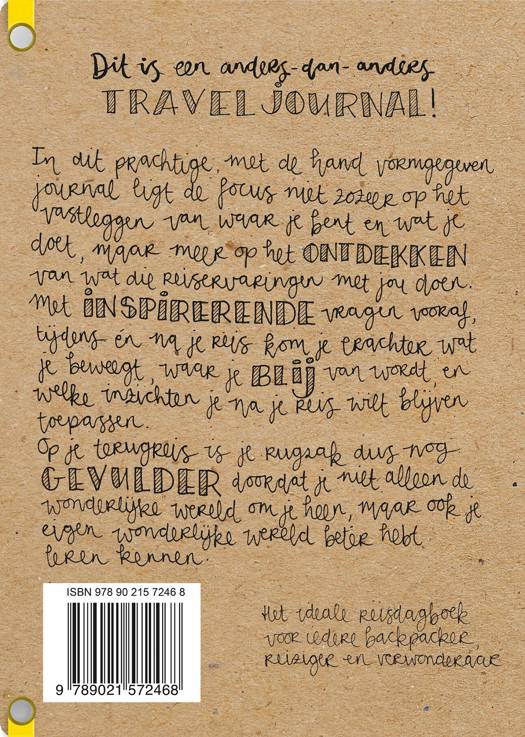 Dit is een anders-dan-anders
TRAVEL JOURNAL!
In dit prachtige, met de hand vormgegeven
journal ligt de focus niet zozeer op het
vastleggen van waar je bent en wat je
doet, maar meer op het ONTDEKKEN
van wat die reiservaringen met jou doen.
Met INSPIRERENDE vragen vooraf,
tijdens én na je reis kom je erachter wat
je beweegt, waar je BLIJ van wordt, en
welke inzichten je na je reis wilt blijven
toepassen.
Op je terugreis is je rugzak dus nog
GEVULDER doordat je niet alleen de
wonderlijke wereld om je heen, maar ook je
eigen wonderlijke wereld beter hebt
leren kennen.
ISBN 978 90 215 7246 8
9 789021 572468
Het ideale reisdagboek
voor iedere backpacker,
reiziger en verwonderaar